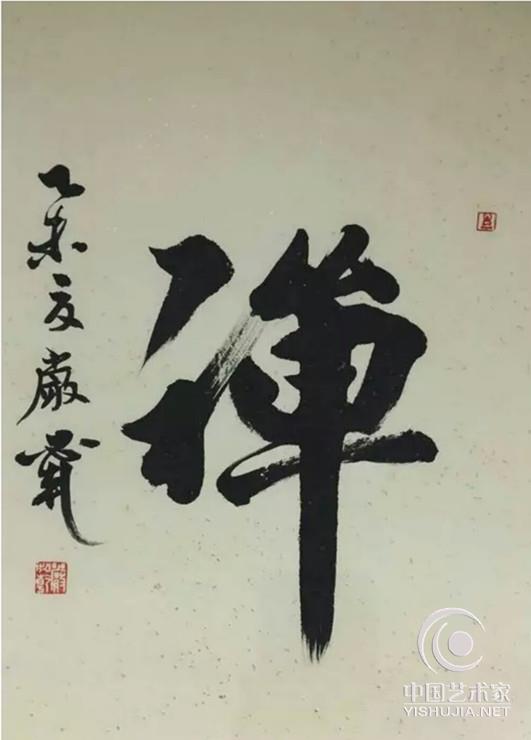 禅
乙未夏
中国艺术家
YISHUJIA.NET